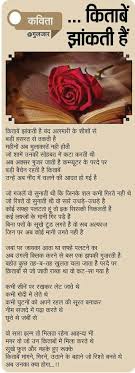 कविता
गुलज़ार
... किताबें
झांकती हैं
किताबें झांकती है बंद अलमारी के शीशों से
बड़ी हसरत से तकती है
महीनों अब मुलाकातें नहीं होती
जो शामें उनकी सोहबत में कटा करती थीं
अब अक्सर गुज़र जाती है कम्प्यूटर के परदे पर
बड़ी बेचैन रहती हैं किताबें
उन्हें अब नींद में चलने की आदत हो गई है
जो गज़लें वो सुनाती थी कि जिनके शल कभी गिरते नहीं थे
जो रिश्ते वो सुनाती थी वो सारे उधड़े-उधड़े हैं
कोई सफ्हा पलटता हूं तो इक सिसकी निकलती है
कई लफ्ज़ों के मानी गिर पड़े हैं
बिना पत्तों के सूखे टुंड लगते हैं वो सब अल्फाज़
जिन पर अब कोई मानी नहीं उगते
जबां पर जायका आता था सफ्हे पलटने का
अब उंगली क्लिक करने से बस एक झपकी गुज़रती है
बहोत कुछ तह-ब-तह खुलता चला जाता है परदे पर
किताबों से जो जाती राब्ता था वो कट-सा गया है
कभी सीने पर रखकर लेट जाते थे
कभी गोदी में लेते थे
कभी घुटनों को अपने रहल की सूरत बनाकर
नीम सजदे में पढ़ा करते थे
छूते थे जबीं से
वो सारा इल्म तो मिलता रहेगा आइन्दा भी
मगर वो जो उन किताबों में मिला करते थे
सूखे फूल और महके हुए रुक्के
किताबें मांगने, गिरने, उठाने के बहाने जो रिश्ते बनते थे
अब उनका क्या होगा...!!